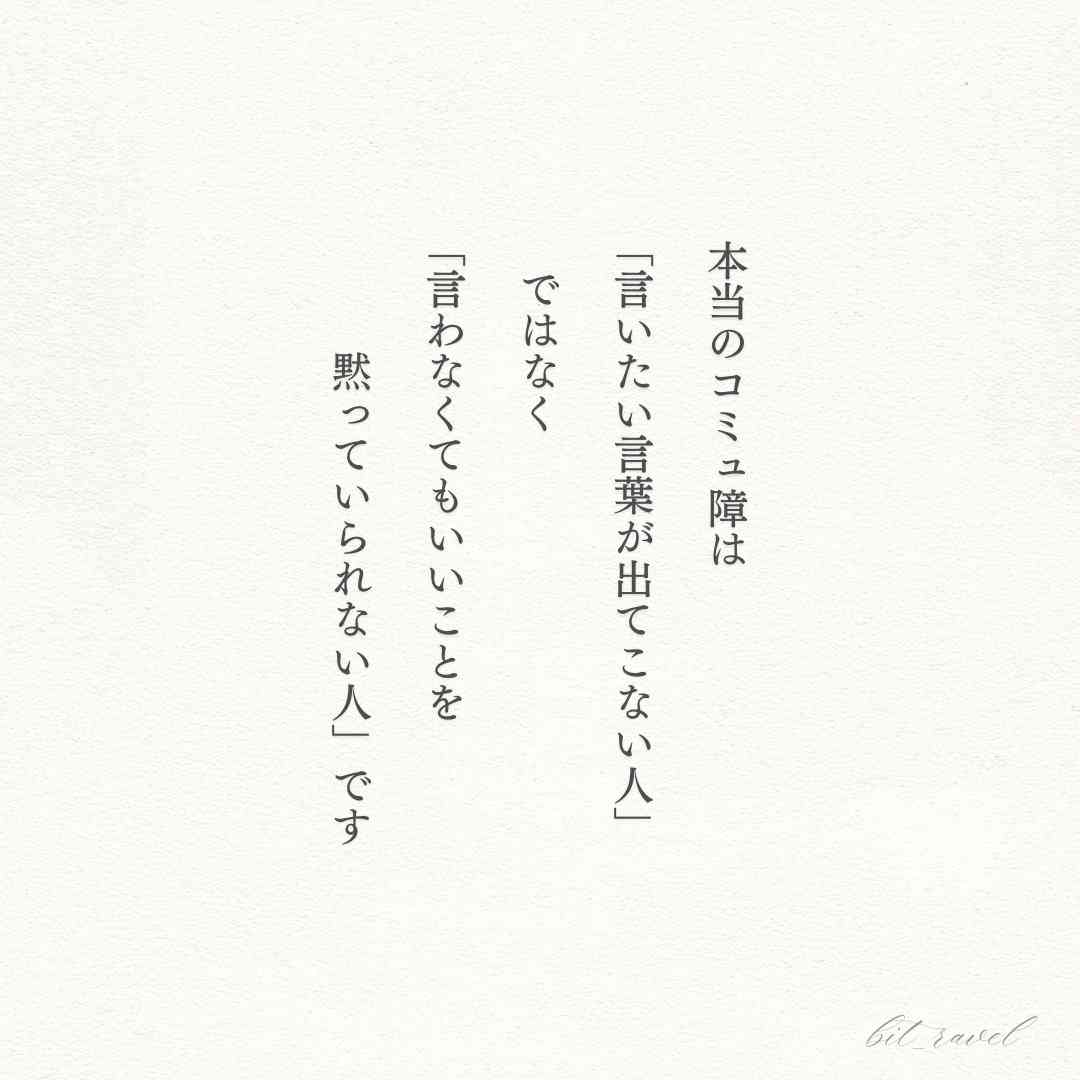 本当のコミュ障は
「言いたい言葉が出てこない人」
ではなく
「言わなくてもいいことを
黙っていられない人」です
bit_ravel